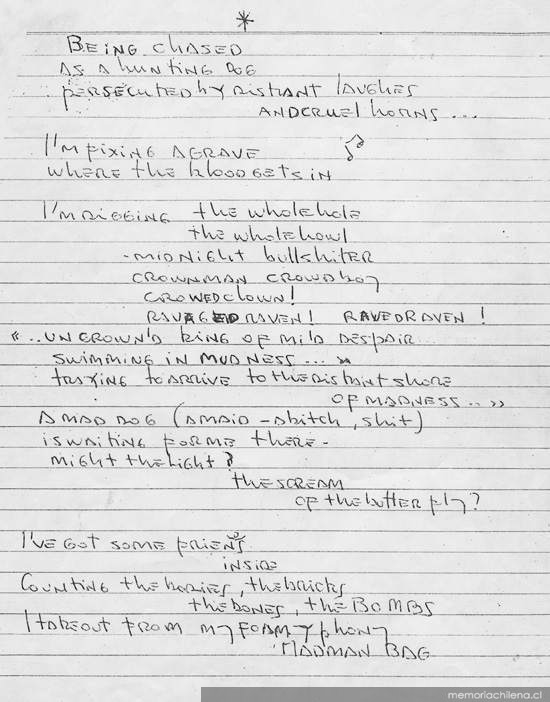 *
BEING CHASED
AS A hUNTING DOG
PERSECUTED by DISTANT lAUGhES
AND CRUEl hORNS ...
I'm FIXING A GRAVE
whERE thE blOOD GEtS iN
I'm DIGGING thE whOlE hOlE
thE whOlE hOwl
- MIDNIGht bullShitER
CROWNMAN CROWDBOY
CROWED ClOWN!
RAVAGED RAVEN! RAVED RAVEN!
"..UNCROWN'D KING OF MILD DESPAIR..
SWIMMING IN MUDNESS... "
tRAYING tO ARRIVE tO thE DIStANt ShORE
OF MADNESS.. "
A MAD DOG (A MAID - A bitch, Shit)
iS WAITING FOR ME thERE -
MIGht thE light?
thE SCREAM
OF thE buttER Fly?
I'VE GOt SOME FRIENDS
INSIDE
COUNtING thE bODIES, thE bRICKS
thE bONES, thE BOMBS
I tAkE OUt FROM my FOAMy PhONy
MADMAN BAG
memoriachilena.cl